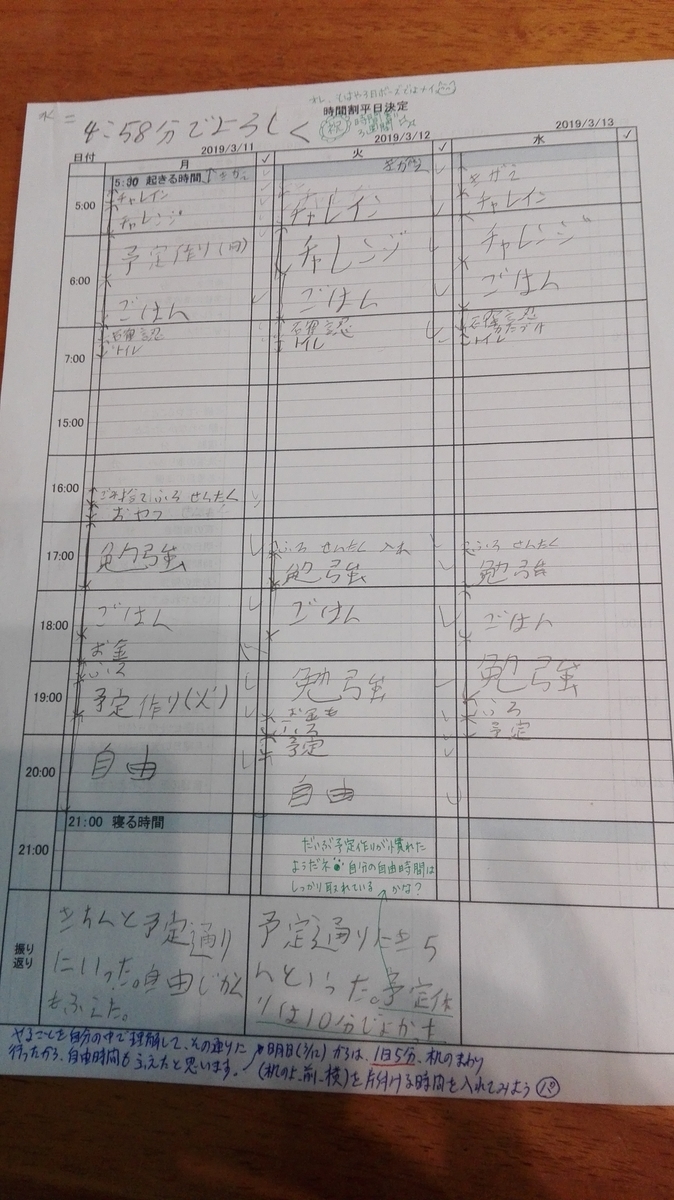 時間割平日決定
水= 4:58分でよろしく
祝
日付
月
2019/3/11
✓
火
2019/3/12
✓
水
2019/3/13
✓
5:00
5:30 起きる時間
チャレイン
チャレイン
チャレイン
チャレンジ
チャレンジ
チャレンジ
6:00
予定作り(月)
ごはん
ごはん
ごはん
7:00
確認
確認
確認
トイレ
トイレ
トイレ
15:00
16:00
ゴミ捨て ふろ せんたく
おやつ
17:00
勉強
ふろ せんたく 入れ
勉強
ふろ せんたく
勉強
18:00
ごはん
ごはん
ごはん
お金
ふろ
19:00
予定作り(火)
勉強
勉強
お金も
ふろ
ふろ
予定
予定
20:00
自由
自由
21:00 寝る時間
21:00
だいぶ予定作りが慣れた
ようだネ 自分の自由時間は
しっかり取れている かな?
振り
返り
きちんと予定通り
にいった。自由じかん
もふえた。
予定通りにきち
んといった。予定作
りは10分
やることを自分の中で理解して、その通りに
行ったから、自由時間もふえたと思います。
明日(3/12)からは、1日5分、机のまわり
(机の上、前、横)を片付ける時間を入れてみよう パパ